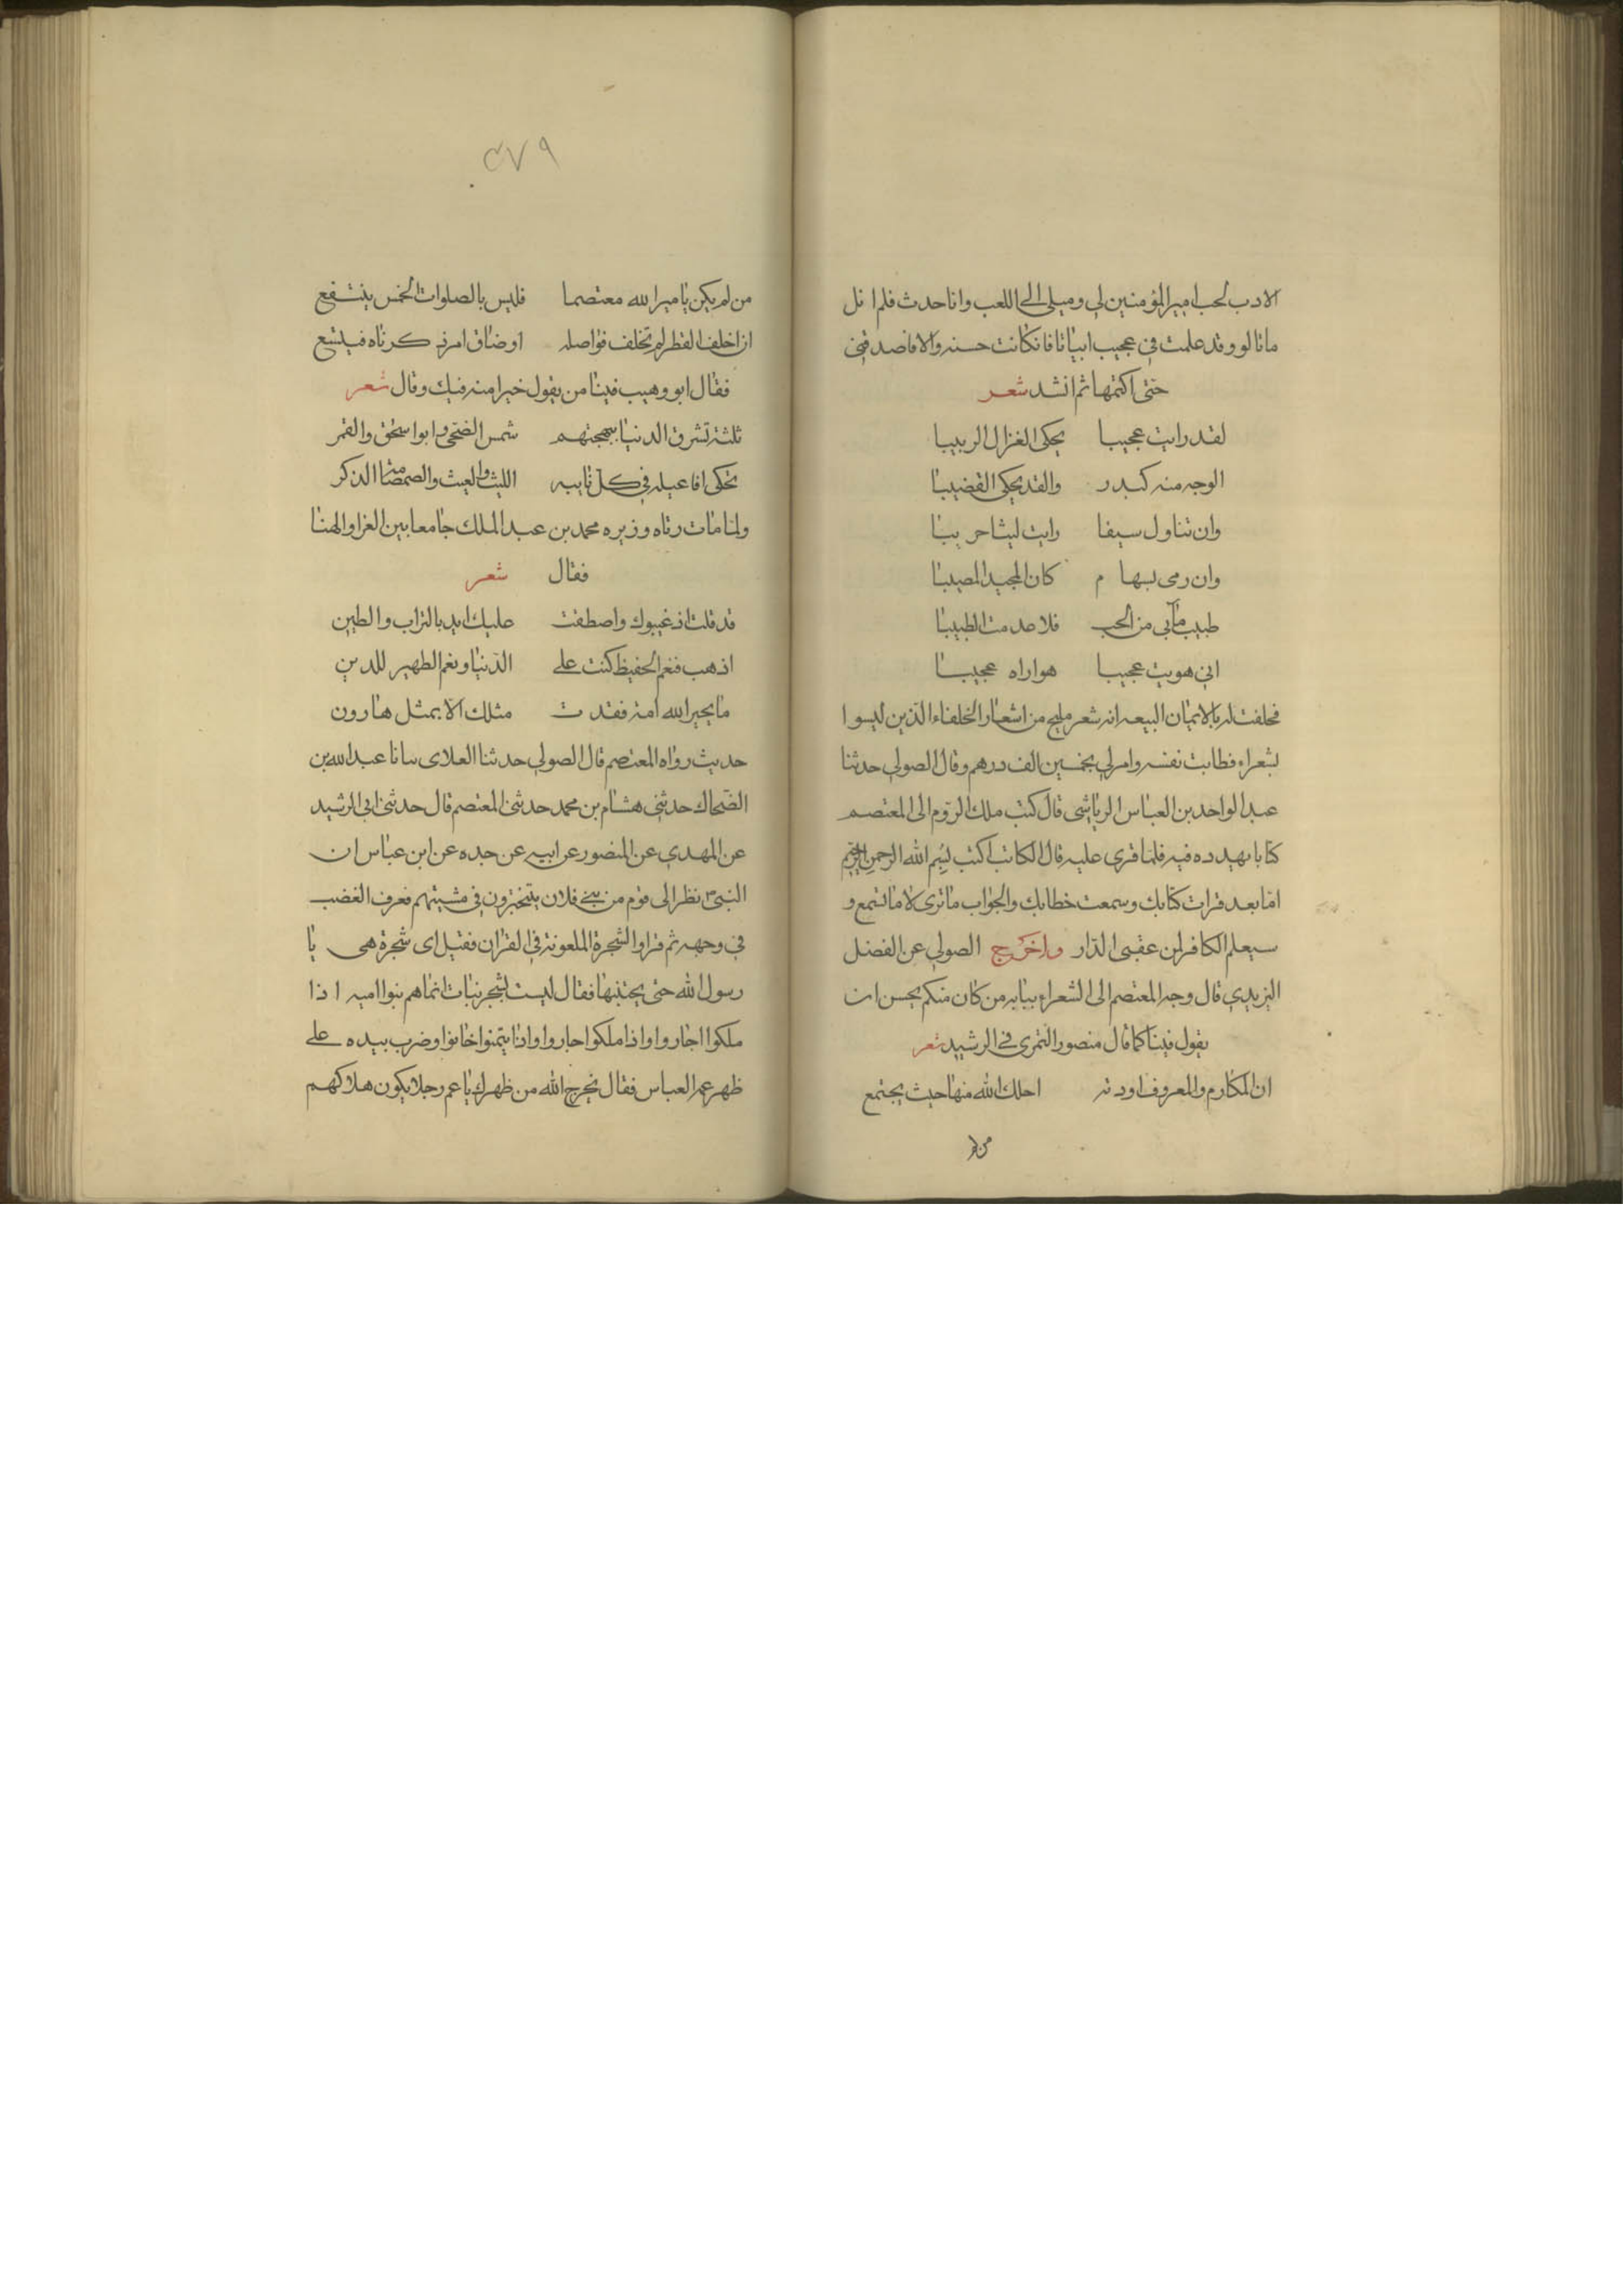 الادب لحب امير المؤمنين لي وميلي الى اللعب وانا حدث فلم انل
مانالو وقد علمت في عجيب ابياتا فانكانت حسنه والا فاصدقني
حتى اكتمها ثم انشد شعر
لقد رايت عجيبا يحكى الغزال الربيبا
الوجه منه كبدر والقد يحكى القضيبا
وان تناول سيفا رايت ليثا حريبا
وان رمى بسهام كان المجيد المصيبا
طبيب مابي من الحب فلا عدمت الطبيبا
اني هويت عجيبا هوا اراه عجيبا
فحلفت له بالايمان البيعه انه شعر مليح من اشعار الخلفاء الذين ليسوا
بشعراء فطابت نفسه وامر لي بخمسين الف درهم وقال الصولي حدثنا
عبد الواحد بن العباس الرياشى قال كتب ملك الروم الى المعتصم
كتابا يهدده فيه فلما قرى عليه قال الكاتب اكتب بسم الله الرحمن الرحيم
اما بعد قرات كتابك وسمعت خطابك والجواب ماترى لا ماتسمع و
سيعلم الكافر لمن عقبى الدار واخرج الصولي عن الفضل
اليزيدي قال وجه المعتصم الى الشعراء ببابه من كان منكم يحسن ان
يقول فينا كما قال منصور النمرى في الرشيد شعر
ان المكارم والمعروف اودية احلك الله منها حيث يجتمع
من لم
٤٧٩
من لم يكن يا مير الله معتصما فليس بالصلوات الخمس ينتفع
ان اخلف القطر لم تخلف فواصله اوضاق امر ذكرناه فيتسع
فقال ابو وهيب فينا من يقول خيرا منه فيك وقال شعر
ثلثة تشرق الدنيا ببهجتهم شمس الضحى وابوا سحق والقمر
تحكى افاعيله في كل نايبه الليث والغيث والصمصامة الذكر
ولما مات رثاه وزيره محمد بن عبد الملك جامعا بين العزا والهنا
فقال شعر
قد قلت اذ غيبوك واصطفقت عليك ايد بالتراب والطين
اذهب فنعم الحفيظ كنت على الدنيا ونعم الظهير للدين
ما يجير الله امة فقدت مثلك الا بمثل هارون
حديث رواه المعتصم قال الصولي حدثنا العلاى ساىا عبد الله بن
الضحاك حدثني هشام بن محمد حدثني المعتصم قال حدثني ابي الرشيد
عن المهدي عن المنصور عن ابيه عن جده عن ابن عباس ان
النبي نظر الى قوم من بني فلان يتبخترون في مشيتهم فعرف الغضب
في وجهه ثم قرا والشجرة الملعونة في القران فقيل اى شجرة هى يا
رسول الله حتى يجتنبها فقال ليست بشجر نبات انما هم بنوا اميه اذا
ملكوا اجاروا واذا ملكوا جاروا واذا ايتمنوا خانوا وضرب بيده على
ظهر عمه العباس فقال يخرج الله من ظهرك يا عم رجلا يكون هلاكهم